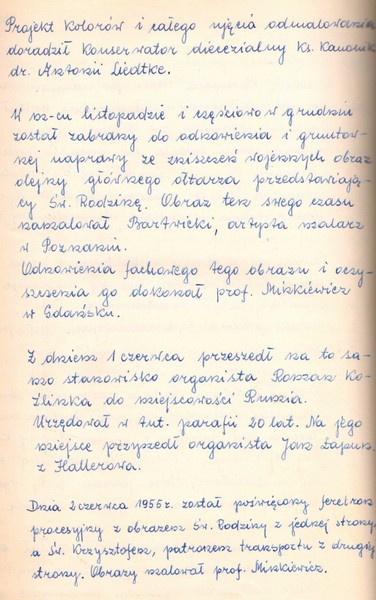 Projekt kolorów i całego ujęcia odmalowania
doradził Konserwator diecezialny Ks. Kanonik
dr. Antoni Liedtke.
W m-cu listopadzie i częściowo w grudniu
został zabrany do odnowienia i gruntow-
nej naprawy ze zniszczeń wojennych obraz
olejny głównego ołtarza przedstawiają-
cy Św. Rodzinę. Obraz ten swego czasu
namalował Bartwicki, artysta malarz
w Poznaniu.
Odnowienia fachowego tego obrazu i oczy-
szczenia go dokonał prof. Minkiewicz
w Gdańsku.
Z dniem 1 czerwca przeszedł na to sa-
mo stanowisko organista Roman Ko-
źlinka do miejscowości Rumia.
Urzędował w tut. parafii 20 lat. Na jego
miejsce przyszedł organista Jan
z Hallerowa.
Dnia 2 czerwca 1955 r. został poświęcony feretron
procesyjny z obrazem Św. Rodziny z jednej strony,
a Św. Krzysztofem, patronem transportu z drugiej
strony. Obrazy malował prof. Minkiewicz.